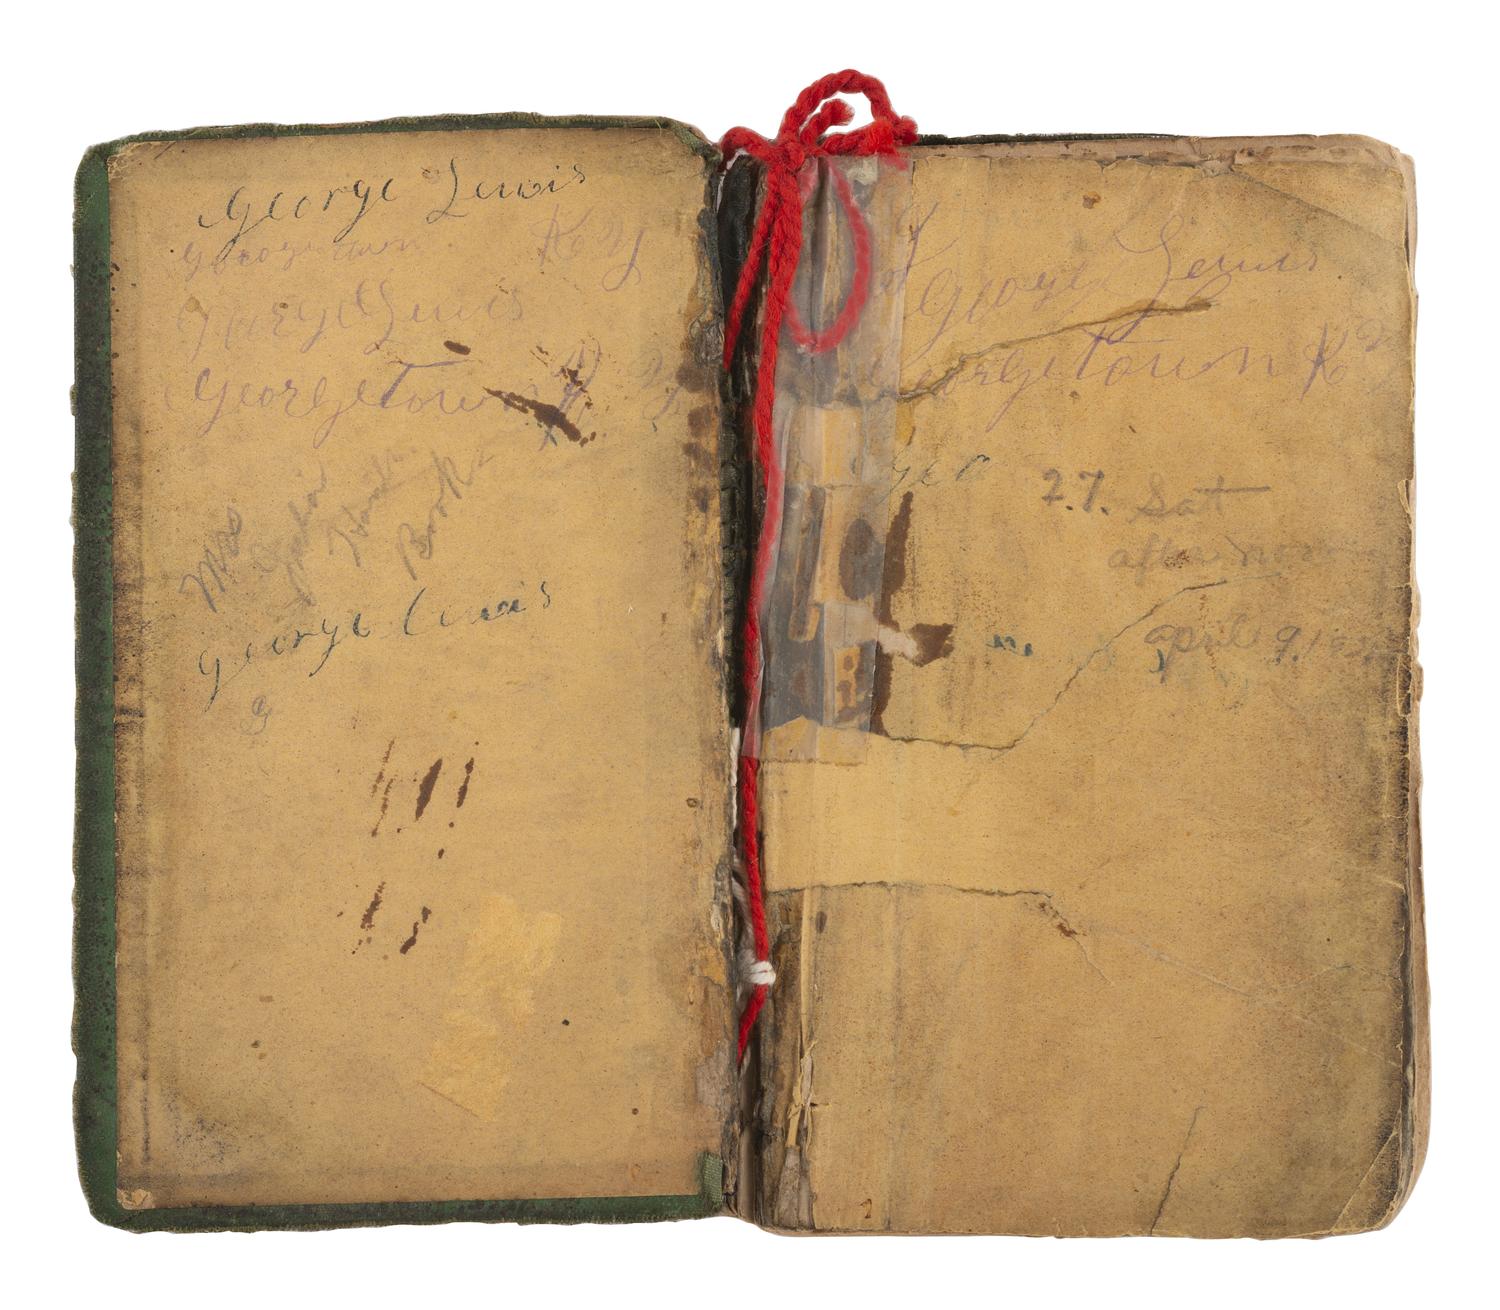 George Lewis
Georgetown Ky
Mary Lewis
Georgetown Ky
Mrs
Hand
Book
George Lewis
G
George Lewis
Georgetown Ky
geo
27. Sat
after noon
april 9, 193